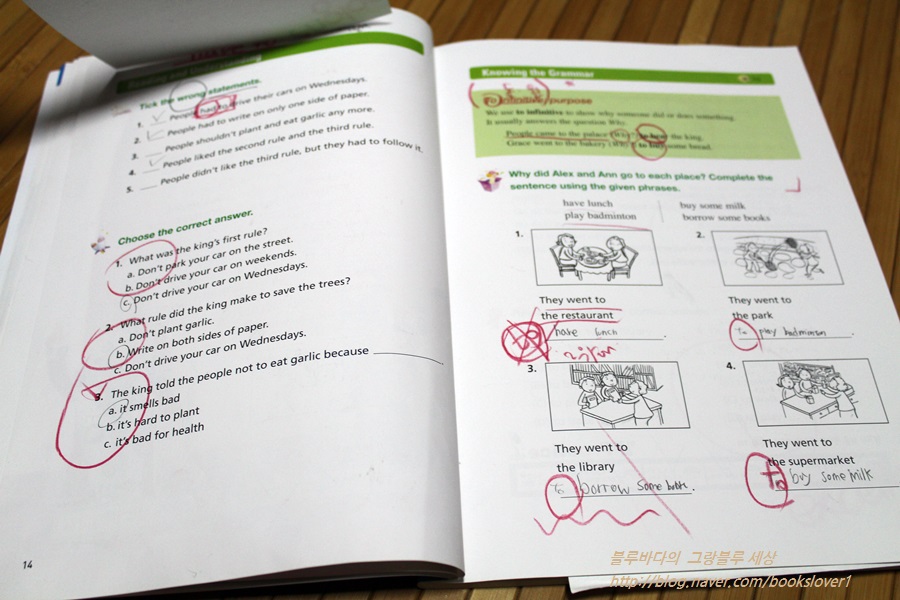 Tick the wrong statements.
1. People had to drive their cars on Wednesdays.
2. People had to write on only one side of paper.
3. People shouldn't plant and eat garlic any more.
4. People liked the second rule and the third rule.
5. People didn't like the third rule, but they had to follow it.
Choose the correct answer.
1. What was the king's first rule?
a. Don't park your car on the street.
b. Don't drive your car on weekends.
c. Don't drive your car on Wednesdays.
2. What rule did the king make to save the trees?
a. Don't plant garlic.
b. Write on both sides of paper.
c. Don't drive your car on Wednesdays.
3. The king told the people not to eat garlic because
a. it smells bad
b. it's hard to plant
c. it's bad for health
14
Knowing the Grammar
To infinitive: purpose
We use to infinitive to show why someone did or does something.
It usually answers the question Why.
People came to the palace (Why?) to hear the king.
Grace went to the bakery (Why?) to buy some bread.
Why did Alex and Ann go to each place? Complete the
sentence using the given phrases.
have lunch buy some milk
play badminton borrow some books
1. 2.
They went to They went to
the restaurant the park
to have lunch. to play badminton
3. 4.
They went to They went to
the library the supermarket
to borrow some books. to buy some milk
블루바다의 그랑블루 세상
http://blog.naver.com/bookslover1